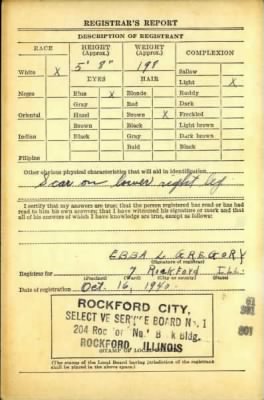 REGISTRAR'S REPORT
DESCRIPTION OF REGISTRANT
RACE HEIGHT (Approx.) WEIGHT (Approx.) COMPLEXION
White X 5' 8" 198 Sallow
EYES HAIR Light X
Negro Blue X Blonde Ruddy
Gray Red Dark
Oriental Hazel Brown X Freckled
Brown Black Light brown
Indian Black Gray Dark brown
Bald Black
Filipino
Other obvious physical characteristics that will aid in identification
Scar on lower right leg
I certify that my answers are true; that the person registered has read or has
had read to him his own answers; that I have witnessed his signature or mark and that
all of his answers of which I have knowledge are true, except as follows:
EBBA L. GREGORY
(Signature of registrar)
Registrar for 7 Rockford Ill.
(Precinct) (Ward) (City or county) (State)
Date of registration Oct. 16, 1940
ROCKFORD CITY,
SELECTIVE SERVICE BOARD No. 1
204 Bldg.
ROCKFORD, ILLINOIS
(STAMP OF LOCAL BOARD)
(The stamp of the Local Board having jurisdiction of the registrant
shall be placed in the above space.)
201